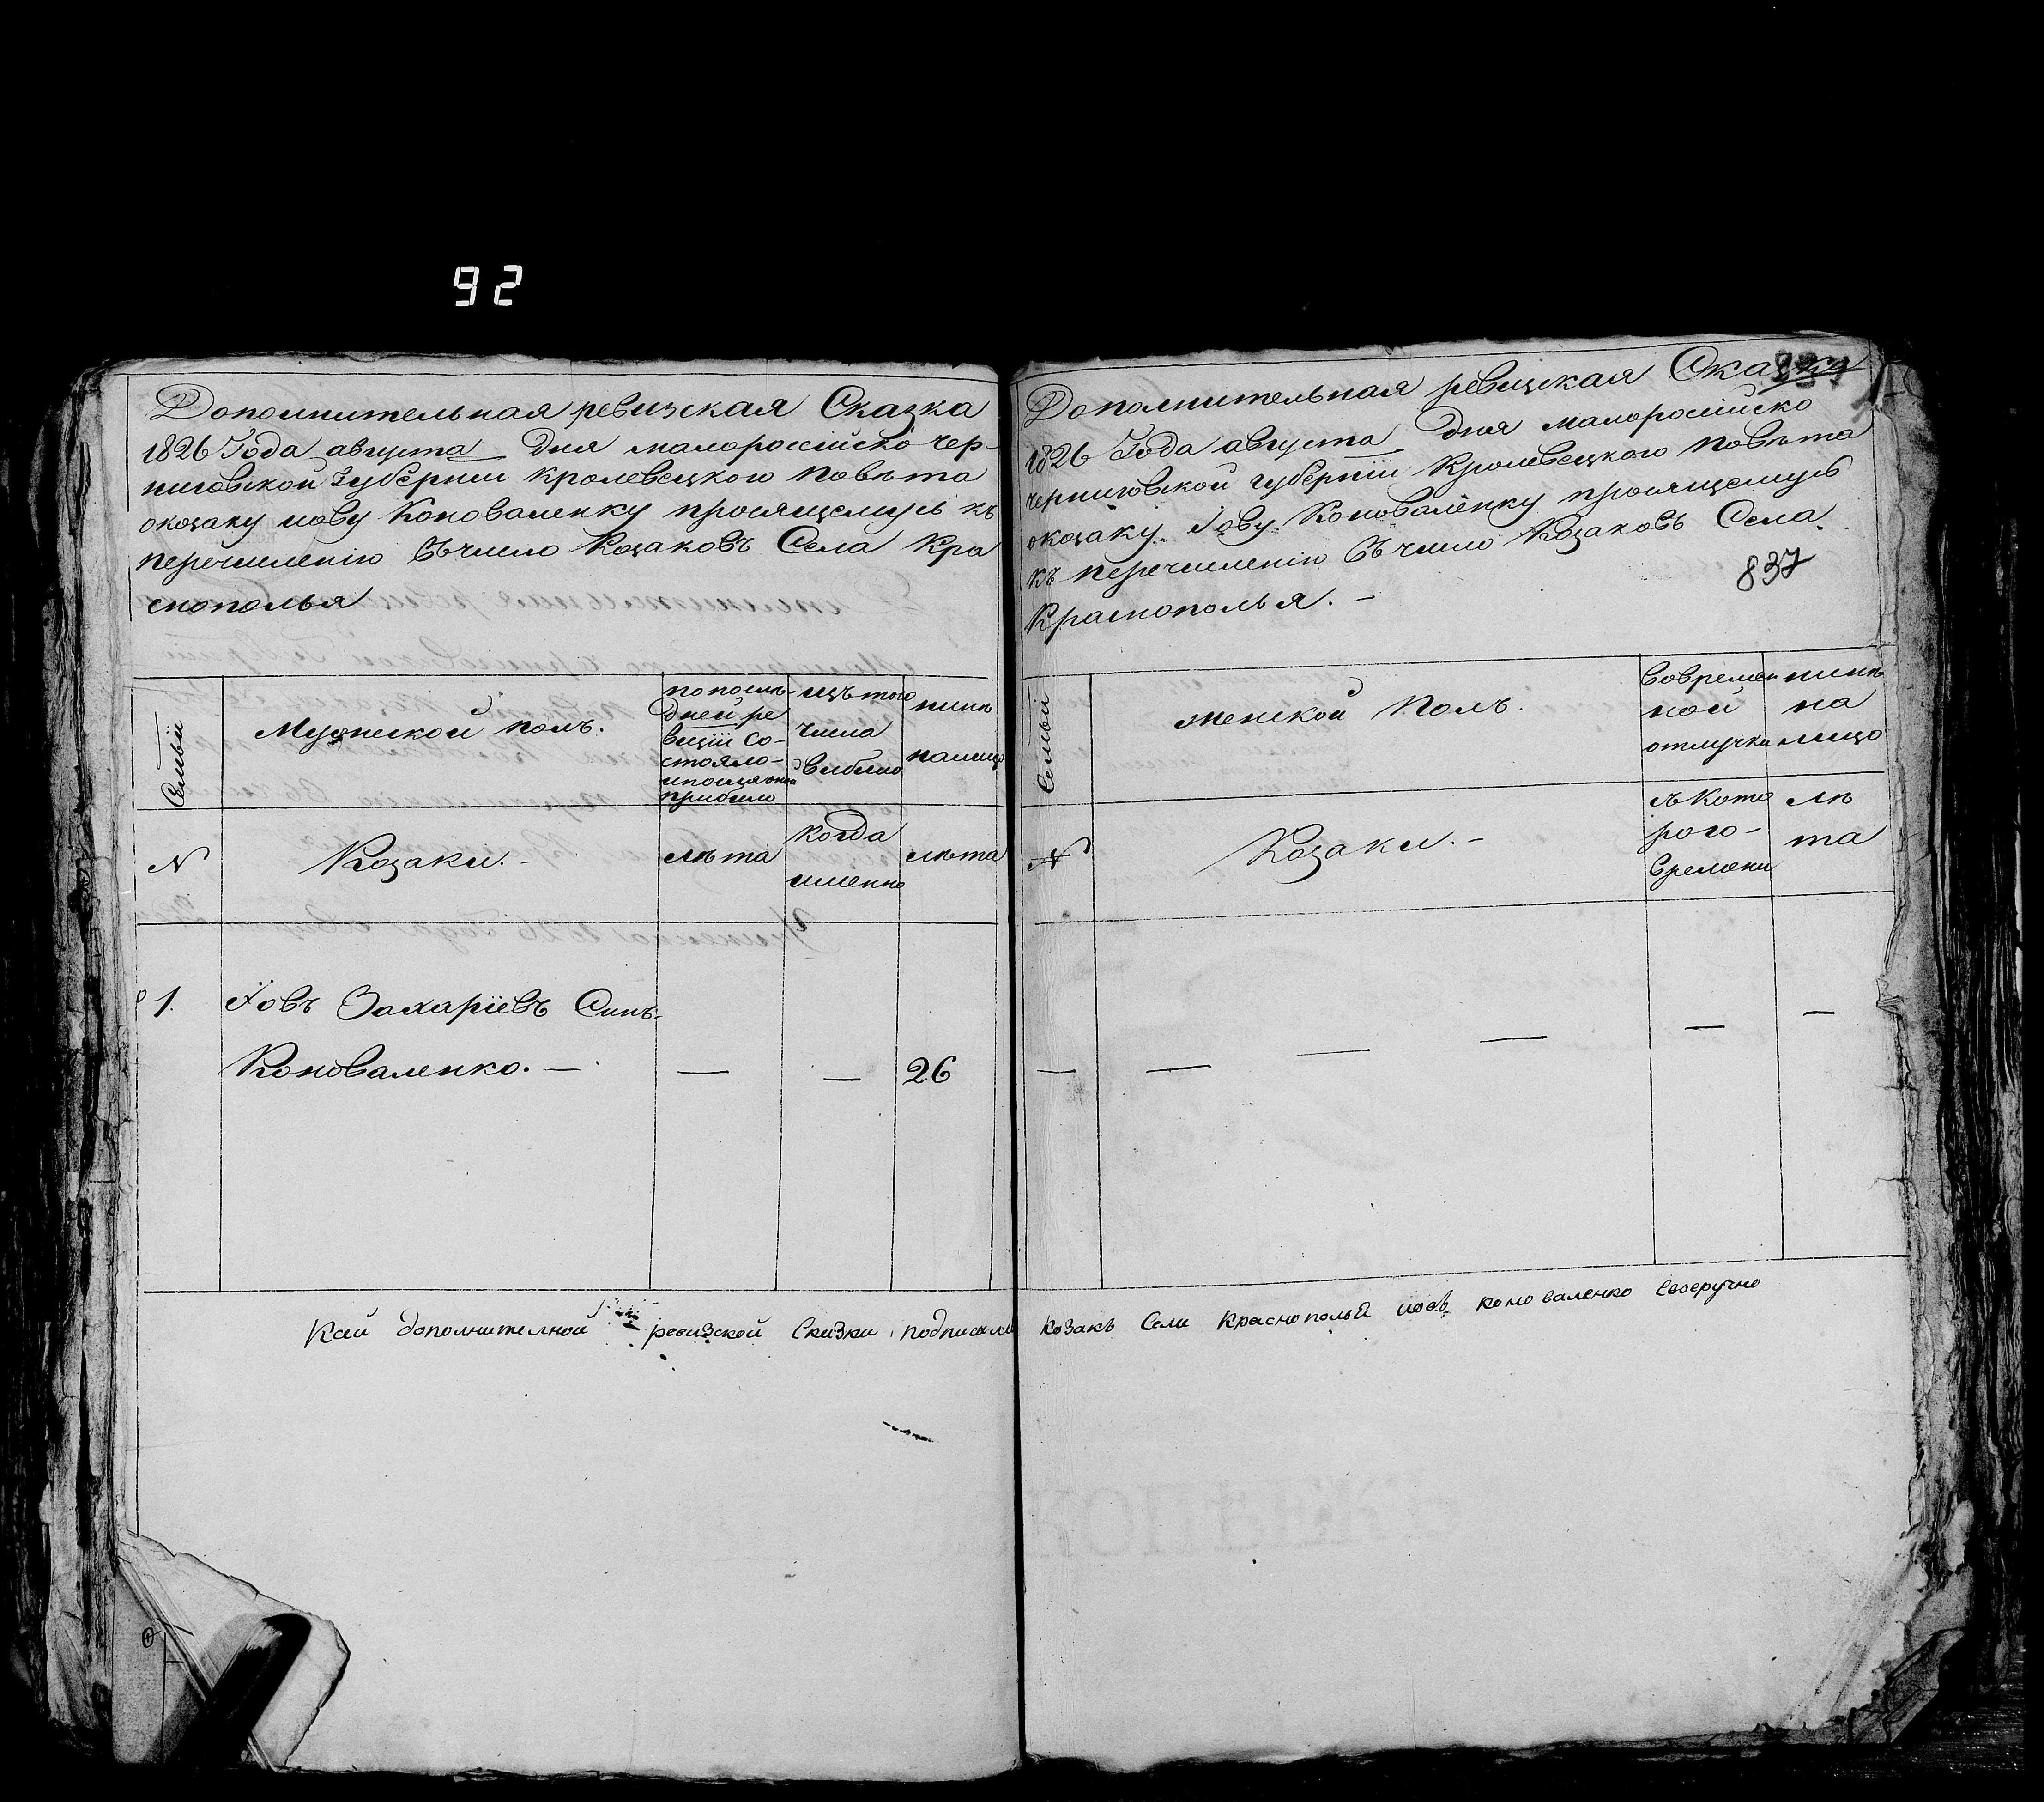 92
Дополнительная ревизская Сказка
1826 Года августа дня малороссійско чер-
ниговской губерніи кролевецкого повѣта
окозаку иову Коноваленку просящемуся къ
перечисленію Въ число Козаковъ Села Кра
снополья
Семьи
Мужеской полъ.
по послѣ-
дней ре
визіи со-
стояло
прибыло
изъ того
числа
выбыло
нинѣ
налицо
N
Козаки.-
лѣта
когда
именно
лѣта
1.
Іовъ Захаріевъ Синъ-
Коноваленко. —
—
—
26
Дополнительная ревизская Сказка
1826 Года августа дня малороссійско
черниговской губерніи Кролевецкого повѣта
окозаку Іову Коноваленку просящемуся
къ перечисленію Въ число Козаковъ Села
Краснополья. -
837
Семьи
женской Полъ.
Во времен
ной
отлучки
нинѣ
на
лицо
N
Козаки. -
съ кото
рого-
Времени
лѣ
та
— — — — — —
Кали дополнителной ревизской Скизки подписали Козакъ Сели Краснополья иовъ коноваленко своеручно